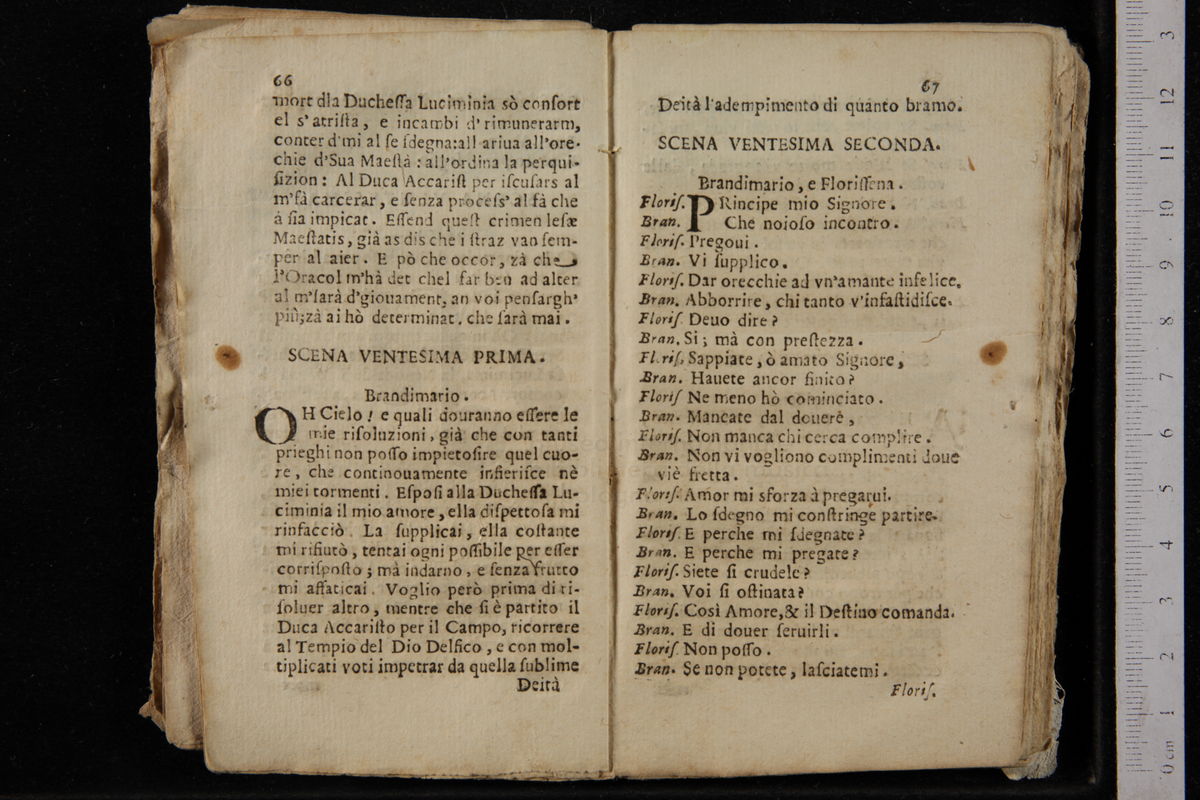 66
mort dla Ducheſſa Luciminia sò conſort
el s'atriſta, e incambi d'rimunerarm,
conter d'mi al ſe ſdegna: all ariua all'ore-
chie d'Sua Maeſtà: all'ordina la perqui-
ſizion: Al Duca Accariſt per iſcuſars al
m'fà carcerar, e ſenza proceſs' al fà che
à ſia impicat. Eſſend queſt crimen leſæ
Maeſtatis, già as dis che i ſtraz van ſem-
per al aier. E pò che occor, zà che
l'Oracol m'hà det chel far ben ad alter
al m'ſarà d'giouament, an voi penſargh'
più; zà ai hò determinat, che ſarà mai.
SCENA VENTESIMA PRIMA.
Brandimario.
OH Cielo! e quali douranno eſſere le
mie riſoluzioni, già che con tanti
prieghi non poſſo impietoſire quel cuo-
re, che continouamente infieriſce nè
miei tormenti. Eſpoſi alla Ducheſſa Lu-
ciminia il mio amore, ella diſpettoſa mi
rinfacciò. La ſupplicai, ella coſtante
mi rifiutò, tentai ogni poſſibile per eſſer
corriſpoſto; mà indarno, e ſenza frutto
mi affaticai. Voglio però prima di ri-
ſoluer altro, mentre che ſi è partito il
Duca Accariſto per il Campo, ricorrere
al Tempio del Dio Delfico, e con mol-
tiplicati voti impetrar da quella ſublime
Deità
67
Deità l'adempimento di quanto bramo.
SCENA VENTESIMA SECONDA.
Brandimario, e Floriſſena.
Floriſ. PRincipe mio Signore.
Bran. Che noioſo incontro.
Floriſ. Pregoui.
Bran. Vi ſupplico.
Floriſ. Dar orecchie ad vn'amante infelice.
Bran. Abborrire, chi tanto v'infaſtidiſce.
Floriſ. Deuo dire?
Bran. Si; mà con preſtezza.
Floriſ. Sappiate, ò amato Signore,
Bran. Hauete ancor finito?
Floriſ Ne meno hò cominciato.
Bran. Mancate dal douere,
Floriſ. Non manca chi cerca complire.
Bran. Non vi vogliono complimenti doue
viè fretta.
Floriſ. Amor mi sforza à pregarui.
Bran. Lo ſdegno mi conſtringe partire.
Floriſ. E perche mi ſdegnate?
Bran. E perche mi pregate?
Floriſ. Siete ſi crudele?
Bran. Voi ſi oſtinata?
Floriſ. Così Amore, & il Deſtino comanda.
Bran. E di douer ſeruirli.
Floriſ. Non poſſo.
Bran. Se non potete, laſciatemi.
Floriſ.
0 cm 1 2 3 4 5 6 7 8 9 10 11 12 3